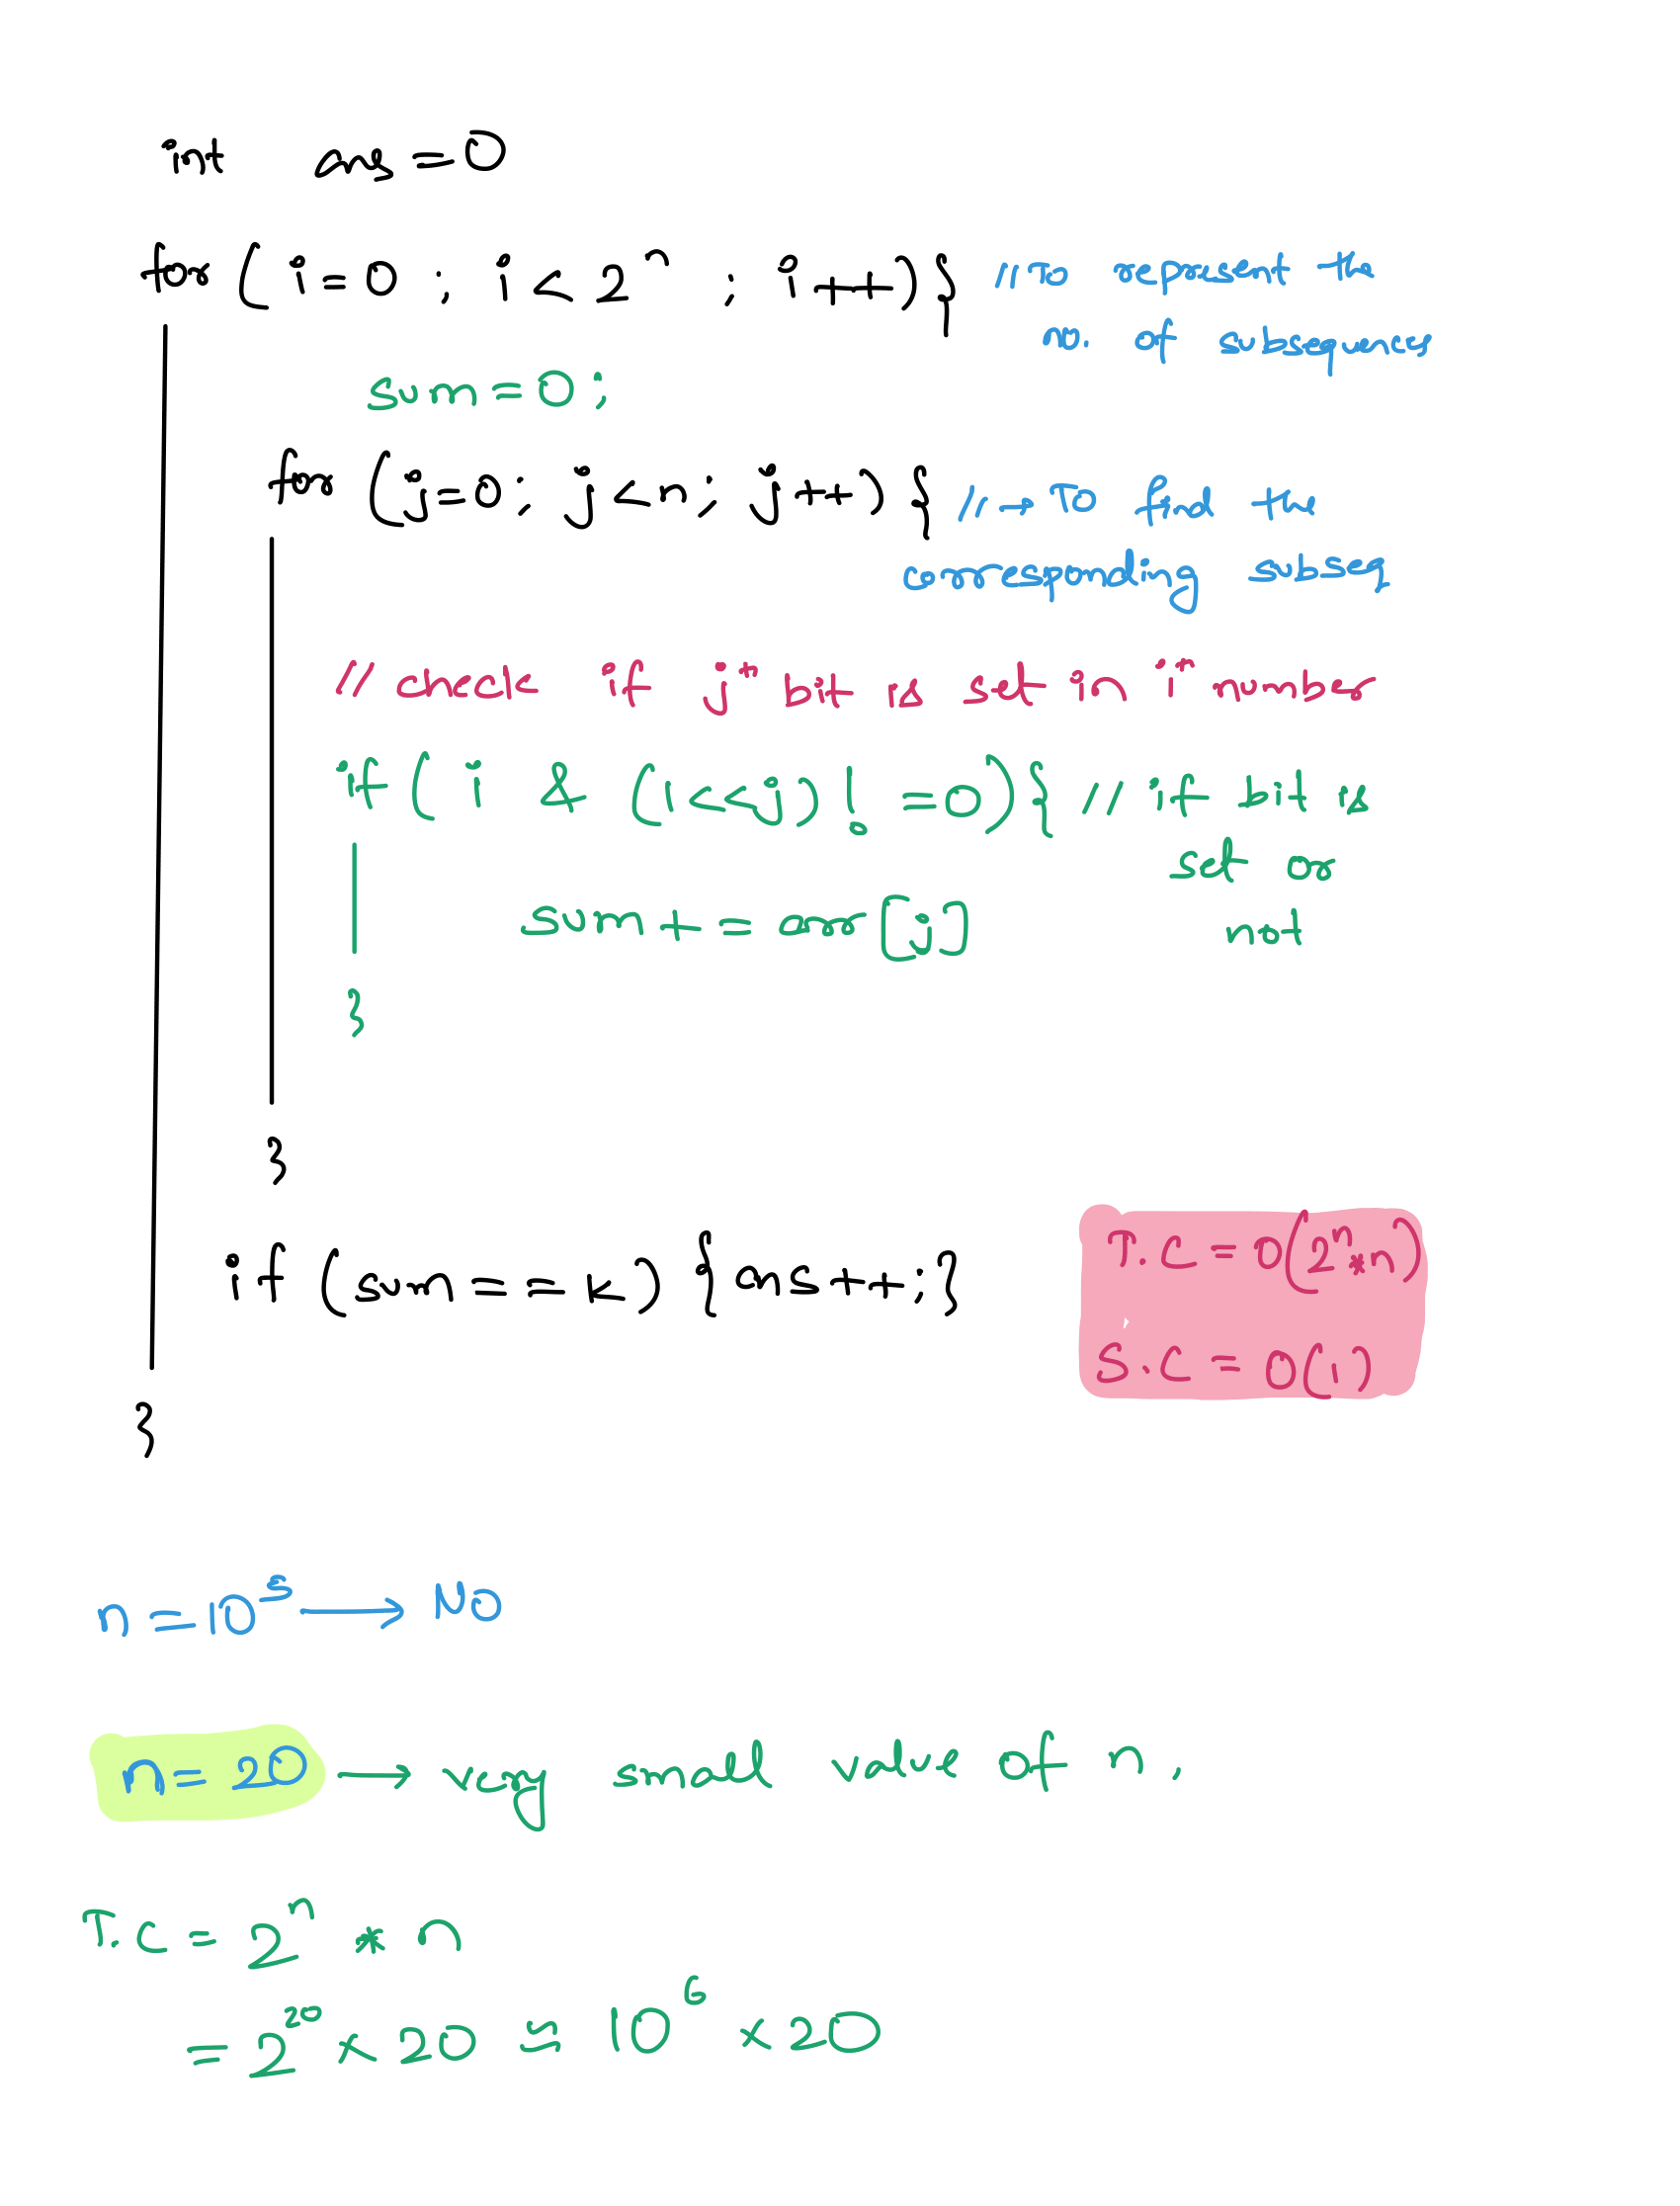 int ans = 0
for ( i = 0 ; i < 2^n ; i++ ) { // To represent the
no. of subsequences
sum = 0 ;
for ( j = 0 ; j < n ; j++ ) { // → To find the
corresponding subseq
// check if jth bit is set in ith number
if ( i & (1<<j) != 0 ) { // if bit is
set or
not
sum + = arr [j]
}
}
if ( sum = = k ) { ans ++ ; }
}
T.C = O(2^n * n)
S.C = O(1)
n = 10^5 → No
n = 20 → very small value of n .
T.C = 2^n * n
= 2^20 × 20 ≈ 10^6 × 20